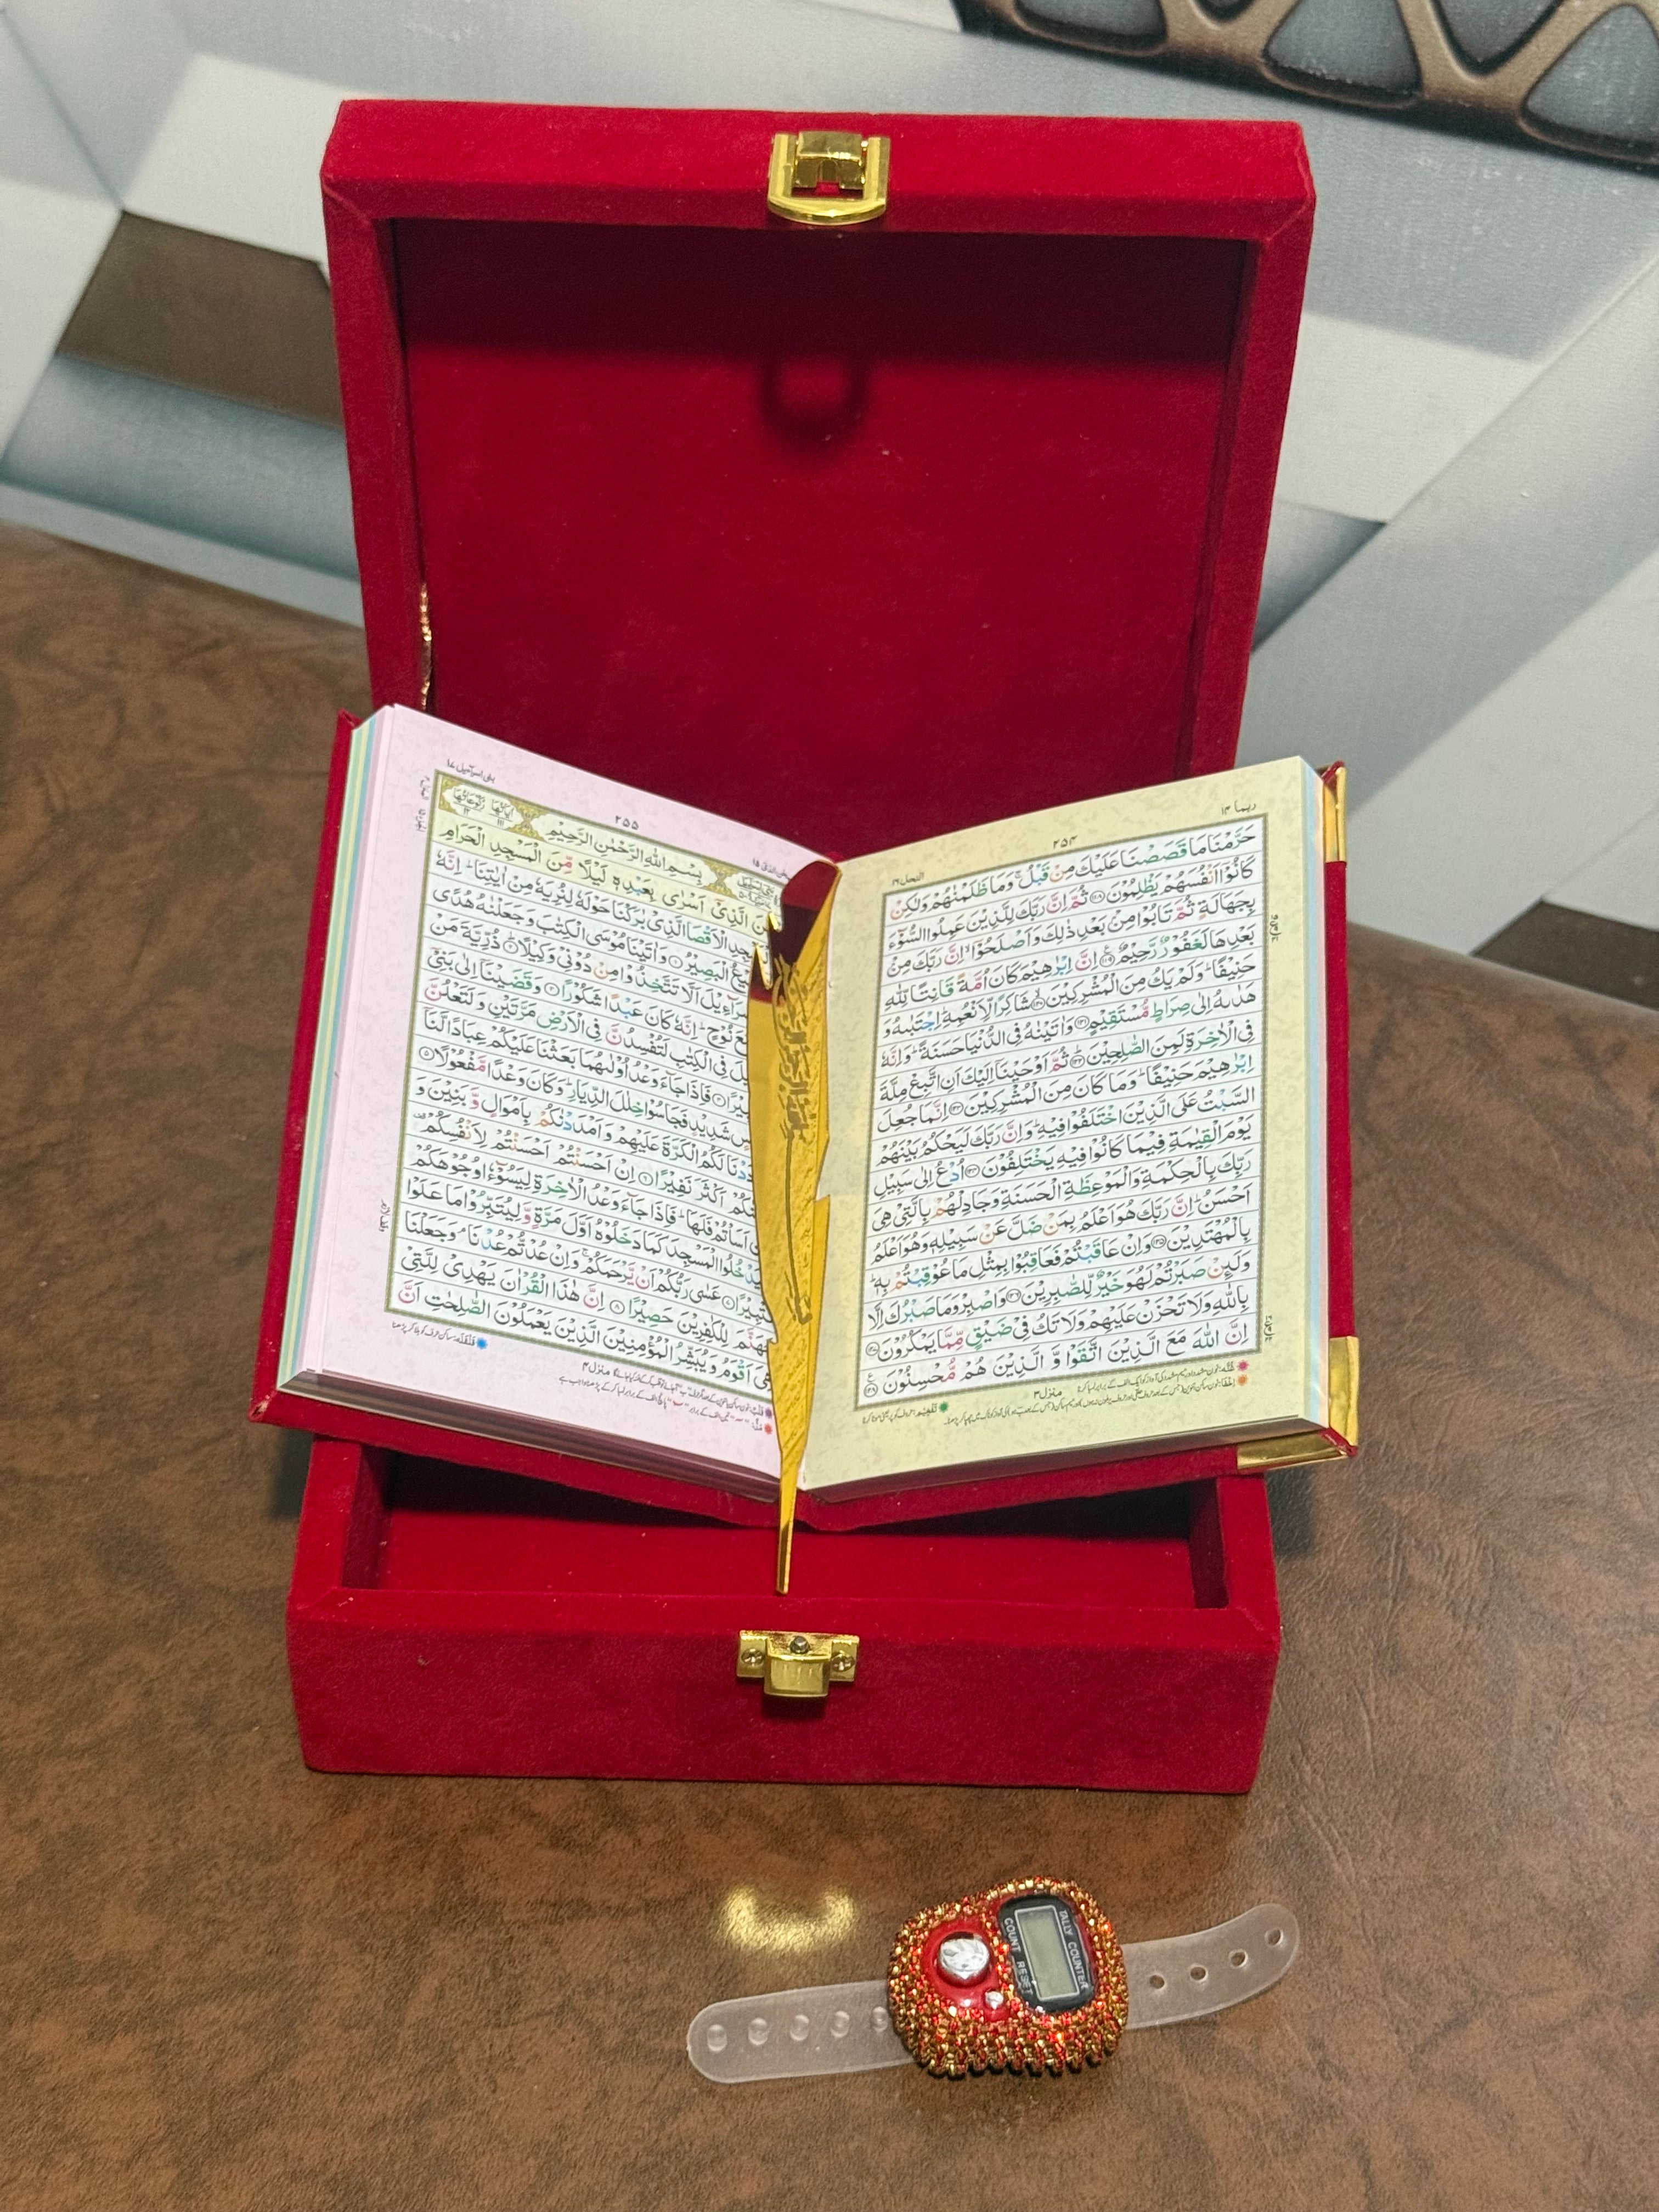 ربما ١٤
٢٥٤
النحل ١٦
حَرَّمْنَا مَا قَصَصْنَا عَلَيْكَ مِنْ قَبْلُ ۚ وَمَا ظَلَمْنٰهُمْ وَلٰكِنْ
كَانُوْٓا اَنْفُسَهُمْ يَظْلِمُوْنَ ﴿۱۱۸﴾ ثُمَّ اِنَّ رَبَّكَ لِلَّذِيْنَ عَمِلُوا السُّوْٓءَ
بِجَهَالَةٍ ثُمَّ تَابُوْا مِنْۢ بَعْدِ ذٰلِكَ وَاَصْلَحُوْٓا ۙ اِنَّ رَبَّكَ مِنْۢ
بَعْدِهَا لَغَفُوْرٌ رَّحِيْمٌ ﴿۱۱۹﴾ اِنَّ اِبْرٰهِيْمَ كَانَ اُمَّةً قَانِتًا لِّلّٰهِ
حَنِيْفًا ؕ وَلَمْ يَكُ مِنَ الْمُشْرِكِيْنَ ﴿۱۲۰﴾ شَاكِرًا لِّاَنْعُمِهٖ ؕ اِجْتَبٰىهُ وَ
هَدٰىهُ اِلٰى صِرَاطٍ مُّسْتَقِيْمٍ ﴿۱۲۱﴾ وَاٰتَيْنٰهُ فِى الدُّنْيَا حَسَنَةً ؕ وَاِنَّهٗ
فِى الْاٰخِرَةِ لَمِنَ الصّٰلِحِيْنَ ﴿۱۲۲﴾ ثُمَّ اَوْحَيْنَآ اِلَيْكَ اَنِ اتَّبِعْ مِلَّةَ
اِبْرٰهِيْمَ حَنِيْفًا ؕ وَمَا كَانَ مِنَ الْمُشْرِكِيْنَ ﴿۱۲۳﴾ اِنَّمَا جُعِلَ
السَّبْتُ عَلَى الَّذِيْنَ اخْتَلَفُوْا فِيْهِ ؕ وَاِنَّ رَبَّكَ لَيَحْكُمُ بَيْنَهُمْ
يَوْمَ الْقِيٰمَةِ فِيْمَا كَانُوْا فِيْهِ يَخْتَلِفُوْنَ ﴿۱۲۴﴾ اُدْعُ اِلٰى سَبِيْلِ
رَبِّكَ بِالْحِكْمَةِ وَالْمَوْعِظَةِ الْحَسَنَةِ وَجَادِلْهُمْ بِالَّتِيْ هِيَ
اَحْسَنُ ؕ اِنَّ رَبَّكَ هُوَ اَعْلَمُ بِمَنْ ضَلَّ عَنْ سَبِيْلِهٖ وَهُوَ اَعْلَمُ
بِالْمُهْتَدِيْنَ ﴿۱۲۵﴾ وَاِنْ عَاقَبْتُمْ فَعَاقِبُوْا بِمِثْلِ مَا عُوْقِبْتُمْ بِهٖ ؕ
وَلَئِنْ صَبَرْتُمْ لَهُوَ خَيْرٌ لِّلصّٰبِرِيْنَ ﴿۱۲۶﴾ وَاصْبِرْ وَمَا صَبْرُكَ اِلَّا
بِاللّٰهِ وَلَا تَحْزَنْ عَلَيْهِمْ وَلَا تَكُ فِيْ ضَيْقٍ مِّمَّا يَمْكُرُوْنَ ﴿۱۲۷﴾
اِنَّ اللّٰهَ مَعَ الَّذِيْنَ اتَّقَوْا وَّ الَّذِيْنَ هُمْ مُّحْسِنُوْنَ ﴿۱۲۸﴾
منزل ۳
بنی اسرآءیل ١٧
٢٥٥
اٰيَاتُهَا ۱۱۱
رُكُوْعَاتُهَا ۱۲
بِسْمِ اللّٰهِ الرَّحْمٰنِ الرَّحِيْمِ
الَّذِيْٓ اَسْرٰى بِعَبْدِهٖ لَيْلًا مِّنَ الْمَسْجِدِ الْحَرَامِ
الْاَقْصَا الَّذِيْ بٰرَكْنَا حَوْلَهٗ لِنُرِيَهٗ مِنْ اٰيٰتِنَا ؕ اِنَّهٗ
الْبَصِيْرُ ﴿۱﴾ وَاٰتَيْنَا مُوْسَى الْكِتٰبَ وَجَعَلْنٰهُ هُدًى
اَلَّا تَتَّخِذُوْا مِنْ دُوْنِيْ وَكِيْلًا ﴿۲﴾ ذُرِّيَّةَ مَنْ
نُوْحٍ ؕ اِنَّهٗ كَانَ عَبْدًا شَكُوْرًا ﴿۳﴾ وَقَضَيْنَآ اِلٰى بَنِيْٓ
فِى الْكِتٰبِ لَتُفْسِدُنَّ فِى الْاَرْضِ مَرَّتَيْنِ وَلَتَعْلُنَّ
فَاِذَا جَآءَ وَعْدُ اُوْلٰىهُمَا بَعَثْنَا عَلَيْكُمْ عِبَادًا لَّنَآ
شَدِيْدٍ فَجَاسُوْا خِلٰلَ الدِّيَارِ ؕ وَكَانَ وَعْدًا مَّفْعُوْلًا ﴿۵﴾
لَكُمُ الْكَرَّةَ عَلَيْهِمْ وَاَمْدَدْنٰكُمْ بِاَمْوَالٍ وَّ بَنِيْنَ وَ
اَكْثَرَ نَفِيْرًا ﴿۶﴾ اِنْ اَحْسَنْتُمْ اَحْسَنْتُمْ لِاَنْفُسِكُمْ
اَسَاْتُمْ فَلَهَا ؕ فَاِذَا جَآءَ وَعْدُ الْاٰخِرَةِ لِيَسُوْٓءٗا وُجُوْهَكُمْ
الْمَسْجِدَ كَمَا دَخَلُوْهُ اَوَّلَ مَرَّةٍ وَّ لِيُتَبِّرُوْا مَا عَلَوْا
عَسٰى رَبُّكُمْ اَنْ يَّرْحَمَكُمْ ۚ وَاِنْ عُدْتُّمْ عُدْنَا ۘ وَجَعَلْنَا
لِلْكٰفِرِيْنَ حَصِيْرًا ﴿۸﴾ اِنَّ هٰذَا الْقُرْاٰنَ يَهْدِيْ لِلَّتِيْ
اَقْوَمُ وَيُبَشِّرُ الْمُؤْمِنِيْنَ الَّذِيْنَ يَعْمَلُوْنَ الصّٰلِحٰتِ اَنَّ
منزل ۴
TALLY COUNTER
COUNT
RESET